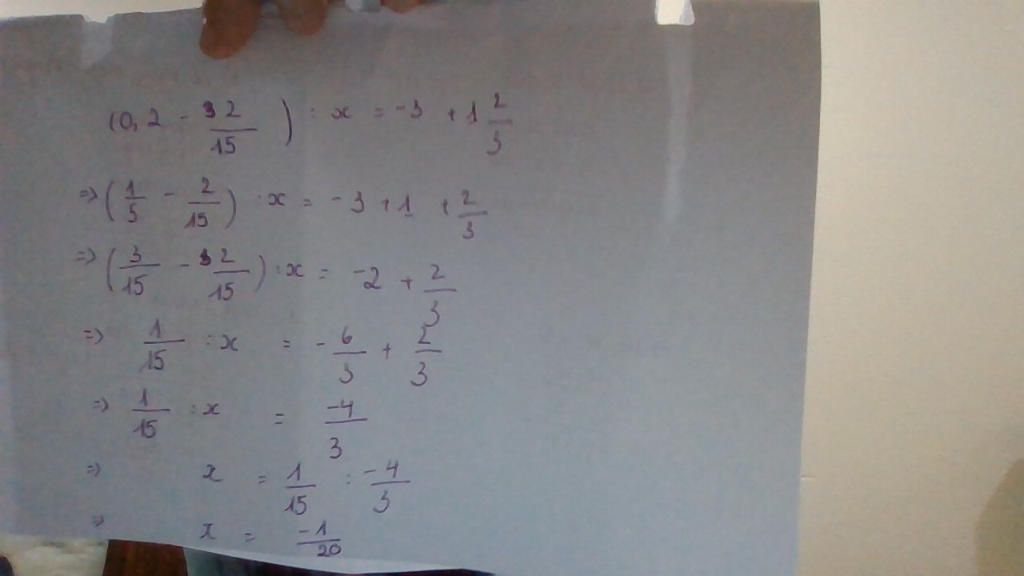 (0,2 - 2/15) : x = -3 + 1 2/3
=> (1/5 - 2/15) : x = -3 + 1 + 2/3
=> (3/15 - 2/15) : x = -2 + 2/3
=> 1/15 : x = -6/3 + 2/3
=> 1/15 : x = -4/3
=> x = 1/15 : -4/3
=> x = -1/20